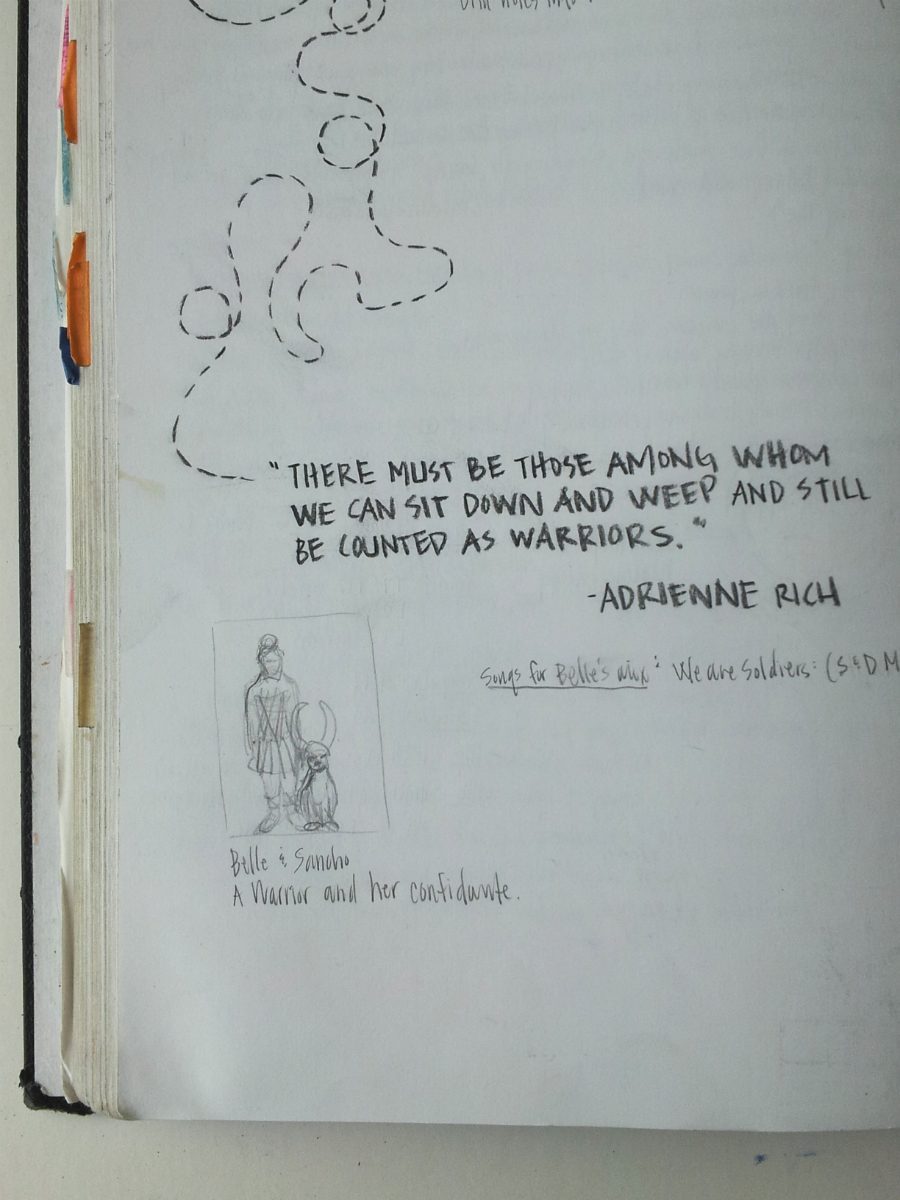 "THERE MUST BE THOSE AMONG WHOM
WE CAN SIT DOWN AND WEEP AND STILL
BE COUNTED AS WARRIORS."
-ADRIENNE RICH
Songs for Belle's mix: We are Soldiers: (S & D M
Belle & Sancho
A Warrior and her confidante.